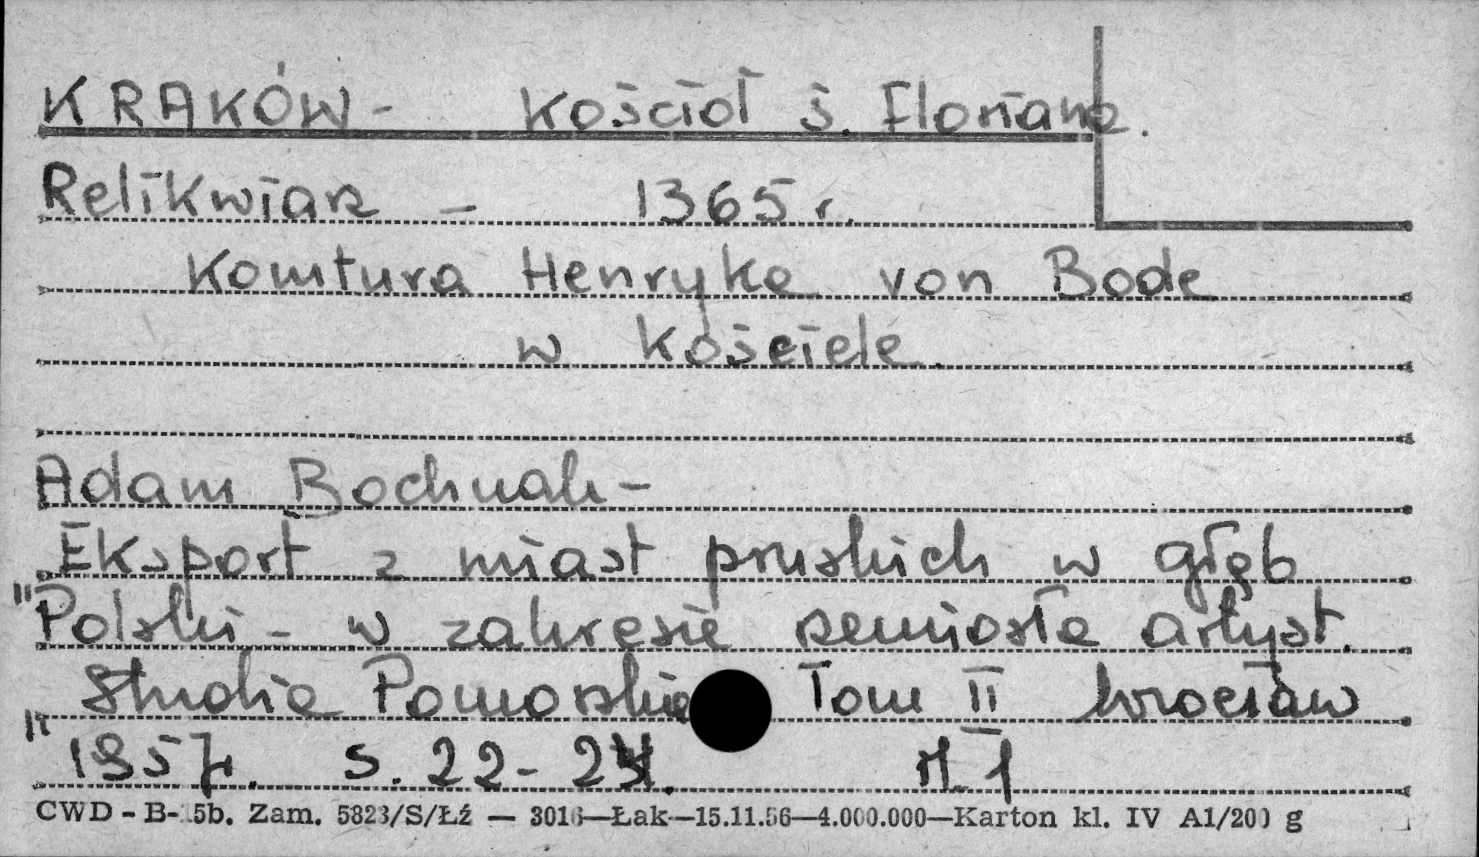 KRAKÓW - Kościół ś. Floriana.
Relikwiarz - 1365 r.
Komtura Henryka von Bode
w Kościele.
Adam Bochnak -
"Eksport z miast pruskich w głąb
Polski - w zakresie rzemiosła artyst.
"Studia Pomorskie Tom II Wrocław
1957. s. 22-24.
CWD - B- 5b. Zam. 5823/S/Łź — 3016—Łak—15.11.56—4.000.000—Karton kl. IV A1/200 g